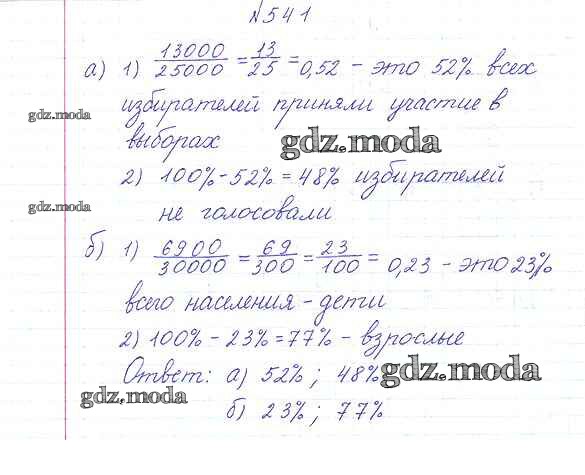 №541
а) 1) 13000/25000 = 13/25 = 0,52 – это 52% всех
избирателей приняли участие в
gdz.moda
выборах
gdz.moda
2) 100% - 52% = 48% избирателей
gdz.moda
не голосовали
б) 1) 6900/30000 = 69/300 = 23/100 = 0,23 - это 23%
всего населения - дети
2) 100% - 23% = 77% - взрослые
Ответ: а) 52% ; 48%
gdz.moda
gdz.moda
б) 23% ; 77%